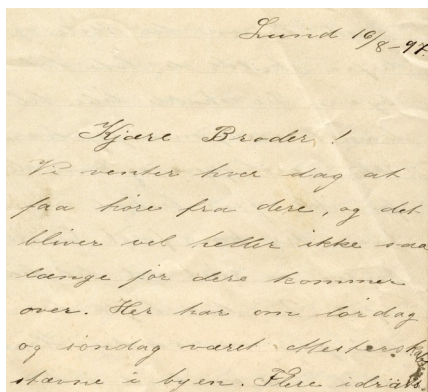 Lund 16/8-97.
Kjære Broder!
Vi venter hver dag at
faa høre fra dere, og det
bliver vel heller ikke saa
længe før dere kommer
over. Her har om lørdag
og søndag været Mesterskabs-
stævne i byen. Flere idræts-